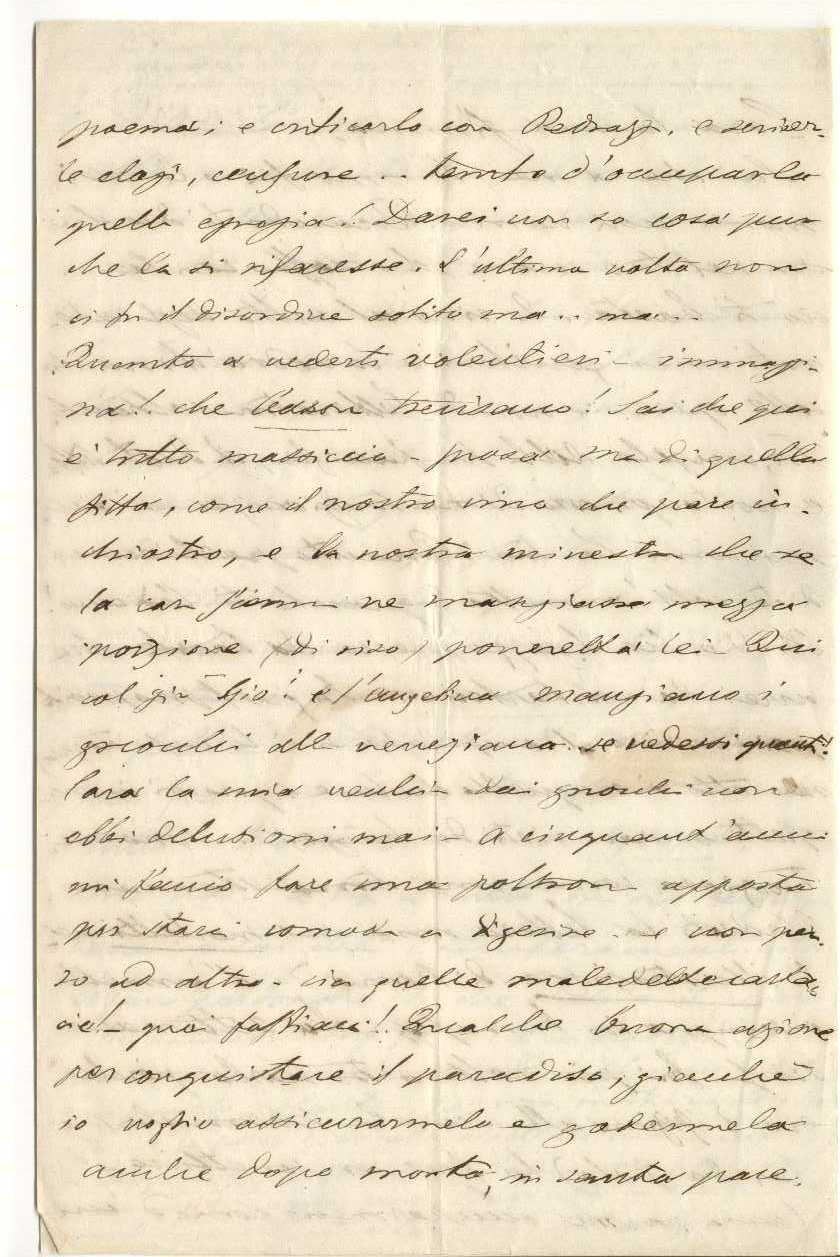 poema; e criticarlo con Pedrazz. e scriver-
le elogi, censure .. tento d'occuparla
quella egregia! Darei non so cosa pur
che la si rifacesse. L'ultima volta non
ci fu il disordine solito ma .. ma ..
Quanto a vederti volentieri – immagi-
na! che trevisano! Sai che qui
è tutto massiccio – prosa ma di quella
fitta, come il nostro vino che pare in-
chiostro, e la nostra minestra che se
la ne mangiasse mezza
porzione (di riso) poveretta lei. Qui
col Gio! e l'Angelina mangiano i
gnocchi alla veneziana. se vedessi quanti!
sarà la mia vecchi– dai gnocchi non
ebbi delusioni mai – a cinquant'anni
mi faccio fare una poltrona apposta
per starci comoda a digerire – e non pen-
so ad altro – via quelle maledette cartac-
cie! – guai Qualche buona azione
per conquistare il paradiso, giacchè
io voglio assicurarmelo e godermela
anche dopo morta, in santa pace.